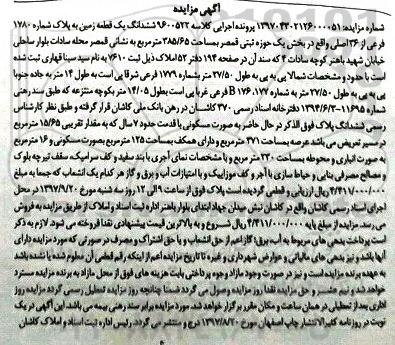 آگهی مزایده
شماره مزایده: ۱۳۹۷۰۴۳۰۲۱۲۶۰۰۰۰۵۱ پرونده اجرایی کلاسه ۹۶۰۰۵۲۲ ششدانگ یک قطعه زمین به پلاک شماره ۱۷۸۰
فرعی از ۳۶ اصلی واقع در بخش یک حوزه ثبتی قمصر بمساحت ۳۸۵/۶۵ مترمربع به نشانی قمصر محله سادات بلوار ساحلی
خیابان شهید باهنر کوچه سادات ۴ که سند آن در صفحه ۱۹۴ دفتر ۵۲ املاک ذیل ثبت ۷۶۱۰ به نام سید سینا قهاری ثبت شده
است با حدود و مشخصات شمالا پی به پی به طول ۲۷/۵۰ متر بشماره ۱۷۷۹ فرعی شرقا پی است به طول ۱۴ متر به جاده جنوبا
پی به پی به طول ۲۷/۵۰ متر به شماره ۱۷۶.۱۷۷ B فرعی غربا پی است بطول ۱۴/۰۵ متر بکوچه متنزعه که طبق سند رهنی
شماره ۱۱۶۹۵-۱۳۹۴/۶/۳ دفترخانه اسناد رسمی ۳۷۰ کاشان در رهن بانک ملی کاشان قرار گرفته و طبق نظر کارشناس
رسمی ششدانگ پلاک فوق الذکر در حال حاضر به صورت مسکونی با قدمت حدود ۷ سال که به مقدار تقریبی ۱۵/۶۵ مترمربع
در مسیر تعریض می باشد عرصه بمساحت ۳۷۱ مترمربع و دارای همکف بمساحت ۱۲۵ مترمربع بصورت مسکونی و ۱۶ مترمربع
به صورت انباری و محوطه بمساحت ۲۳۰ مترمربع و با مشخصات نمای آجری با بند سفید و کف سرامیک، سقف تیرچه بلوک
و مصالح مصرفی بنایی و حیاط سازی با آجر و کف موزاییک و با امتیازات آب و برق و گاز هر کدام یک انشعاب که جمعا به مبلغ
۴/۴۱۷/۰۰۰/۰۰۰ ریال ارزیابی و قطعی گردیده است پلاک فوق از ساعت ۹ الی ۱۲ روز سه شنبه مورخ ۱۳۹۷/۹/۲۰ در محل
اجرای اسناد رسمی کاشان واقع در کاشان نبش میدان جهاد ابتدای بلوار باهنر اداره ثبت اسناد و املاک از طریق مزایده به فروش
می رسد. مزایده از مبلغ پایه ۴/۴۱۷/۰۰۰/۰۰۰ ریال شروع و به بالاترین قیمت پیشنهادی نقدا فروخته می شود. لازم به ذکر
است پرداخت بدهی های مربوط به آب، برق، گاز اعم از حق انشعاب و یا حق اشتراک و مصرف در صورتی که مورد مزایده دارای
آنها باشد و نیز بدهی های مالیاتی و عوارض شهرداری و غیره تا تاریخ مزایده اعم از اینکه رقم قطعی آن معلوم شده یا نشده باشد
به عهده برنده مزایده است و نیز در صورت وجود مازاد وجوه پرداختی بابت هزینه های فوق از محل مازاد به برنده مزایده مسترد
خواهد شد و نیم عشر و حق مزایده نقدا روز مزایده وصول می گردد ضمنا چنانچه روز مزایده تعطیل رسمی گردد مزایده روز
اداری بعد از تعطیلی در همان ساعت و مکان مقرر برگزار خواهد شد. مورد مزایده برابر سند رهنی بیمه می باشد. این آگهی در یک
نوبت در روزنامه کثیرالانتشار چاپ اصفهان مورخ ۱۳۹۷/۸/۲۰ درج و منتشر می گردد. رئیس اداره ثبت اسناد و املاک کاشان